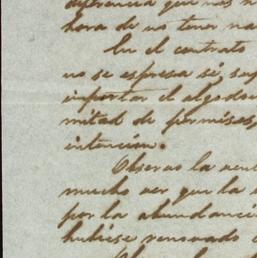 diferencia que nos h
hora de no tener na
En el contrato
no se espresa si, sup
importar el algodon
mitad de permisos,
intencion.
Observo la vent
mucho ver que la
por la abundanci
hubiese renovado